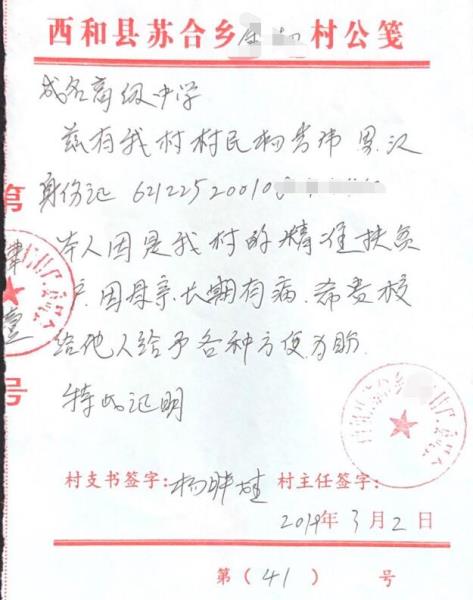 西和县苏合乡 村公笺
成名高级中学
兹有我村村民杨 男.汉
身份证 6212252001
本人因是我村的精准扶贫
户.因母亲.长期有病.希贵校
给他人给予各种方便为盼.
特此证明
村支书签字:杨 村主任签字:
2019年3月2日
第(41)号